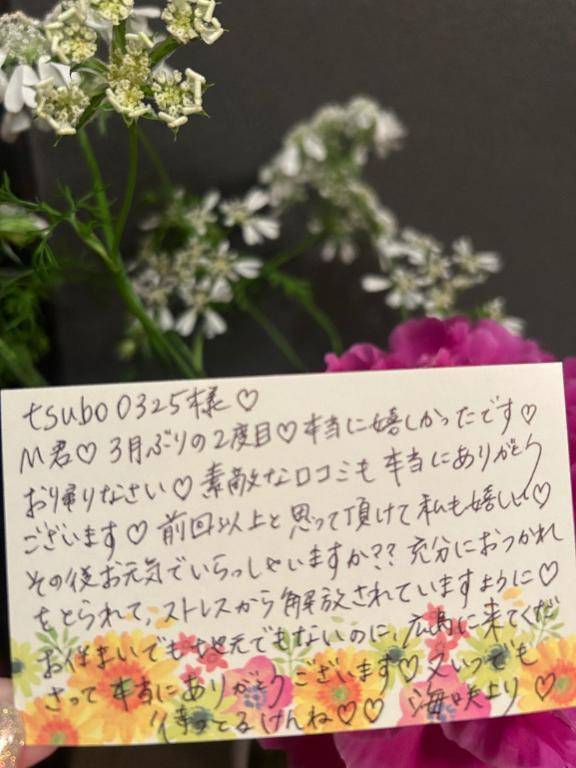 tsubo0325様♡
M君♡3月ぶりの2度目♡本当に嬉しかったです♡
お帰りなさい♡素敵な口コミも本当にありがとう
ございます♡前回以上と思って頂けて私も嬉しい♡
その後お元気でいらっしゃいますか??充分におつかれ
をとられて、ストレスから解放されていますように♡
お住まいでも地元でもないのに、広島に来てくだ
さって本当にありがとうございます♡又いつでも
待ってるけんね♡♡ 海咲より♡